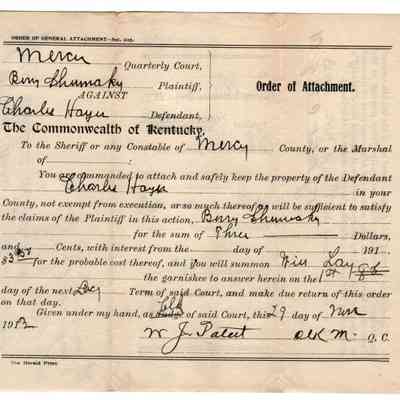 ORDER OF GENERAL ATTACHMENT—Sec.
Mercer Quarterly Court,
Berry Shumaky Plaintiff,
AGAINST Order of Attachment.
Charles Hayes Defendant,
The Commonwealth of Kentucky,
To the Sheriff or any Constable of Mercer County, or the Marshal
of :
You are commanded to attach and safely keep the property of the Defendant
Charles Hayes in your
County, not exempt from execution, or so much thereof as will be sufficient to satisfy
the claims of the Plaintiff in this action, Berry Shumaky
for the sum of Three Dollars,
and Cents, with interest from the day of 191
for the probable cost thereof, and you will summon Will Lay
the garnishee to answer herein on the 1st
day of the next Term of said Court, and make due return of this order
on that day.
Given under my hand, as Judge Clk of said Court, this 29 day of Nov
W. J. Clk M. Q. C.
The Herald Print.